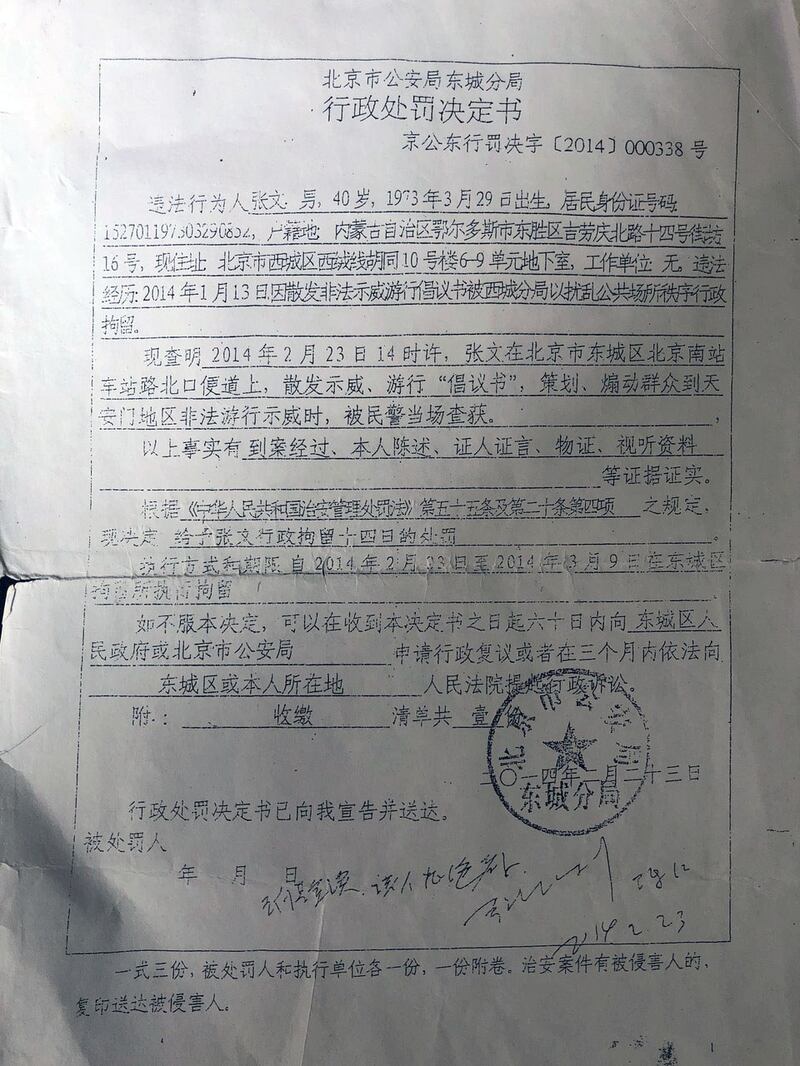 北京市公安局东城分局
行政处罚决定书
京公东行罚决字〔2014〕000338 号
违法行为人张文 男，40岁，1973年3月29日出生，居民身份证号码：
152701197303290832，户籍地 内蒙古自治区鄂尔多斯市东胜区吉劳庆北路十四号街坊
16号，现住址 北京市西城区西绒线胡同10号楼6-9单元地下室，工作单位 无。违法
经历：2014年1月13日因散发非法示威游行倡议书被西城分局以扰乱公共场所秩序行政
拘留。
现查明 2014年2月23日14时许，张文在北京市东城区北京南站
车站路北口便道上，散发示威、游行“倡议书”，策划、煽动群众到天
安门地区非法游行示威时，被民警当场查获。
以上事实有 到案经过、本人陈述、证人证言、物证、视听资料
等证据证实。
根据《中华人民共和国治安管理处罚法》第五十五条及第二十条第四项 之规定，
现决定 给予张文行政拘留十四日的处罚。
执行方式和期限 自2014年2月23日至2014年3月9日在东城区
拘留所执行拘留
如不服本决定，可以在收到本决定书之日起六十日内向 东城区人
民政府或北京市公安局 申请行政复议或者在三个月内依法向
东城区或本人所在地 人民法院提起行政诉讼。
附： 收缴 清单共 壹 份
北京市公安局
二〇一四年二月二十三日
东城分局
行政处罚决定书已向我宣告并送达。
被处罚人
年 月 日
2014.2.23
一式三份，被处罚人和执行单位各一份，一份附卷。治安案件有被侵害人的，
复印送达被侵害人。